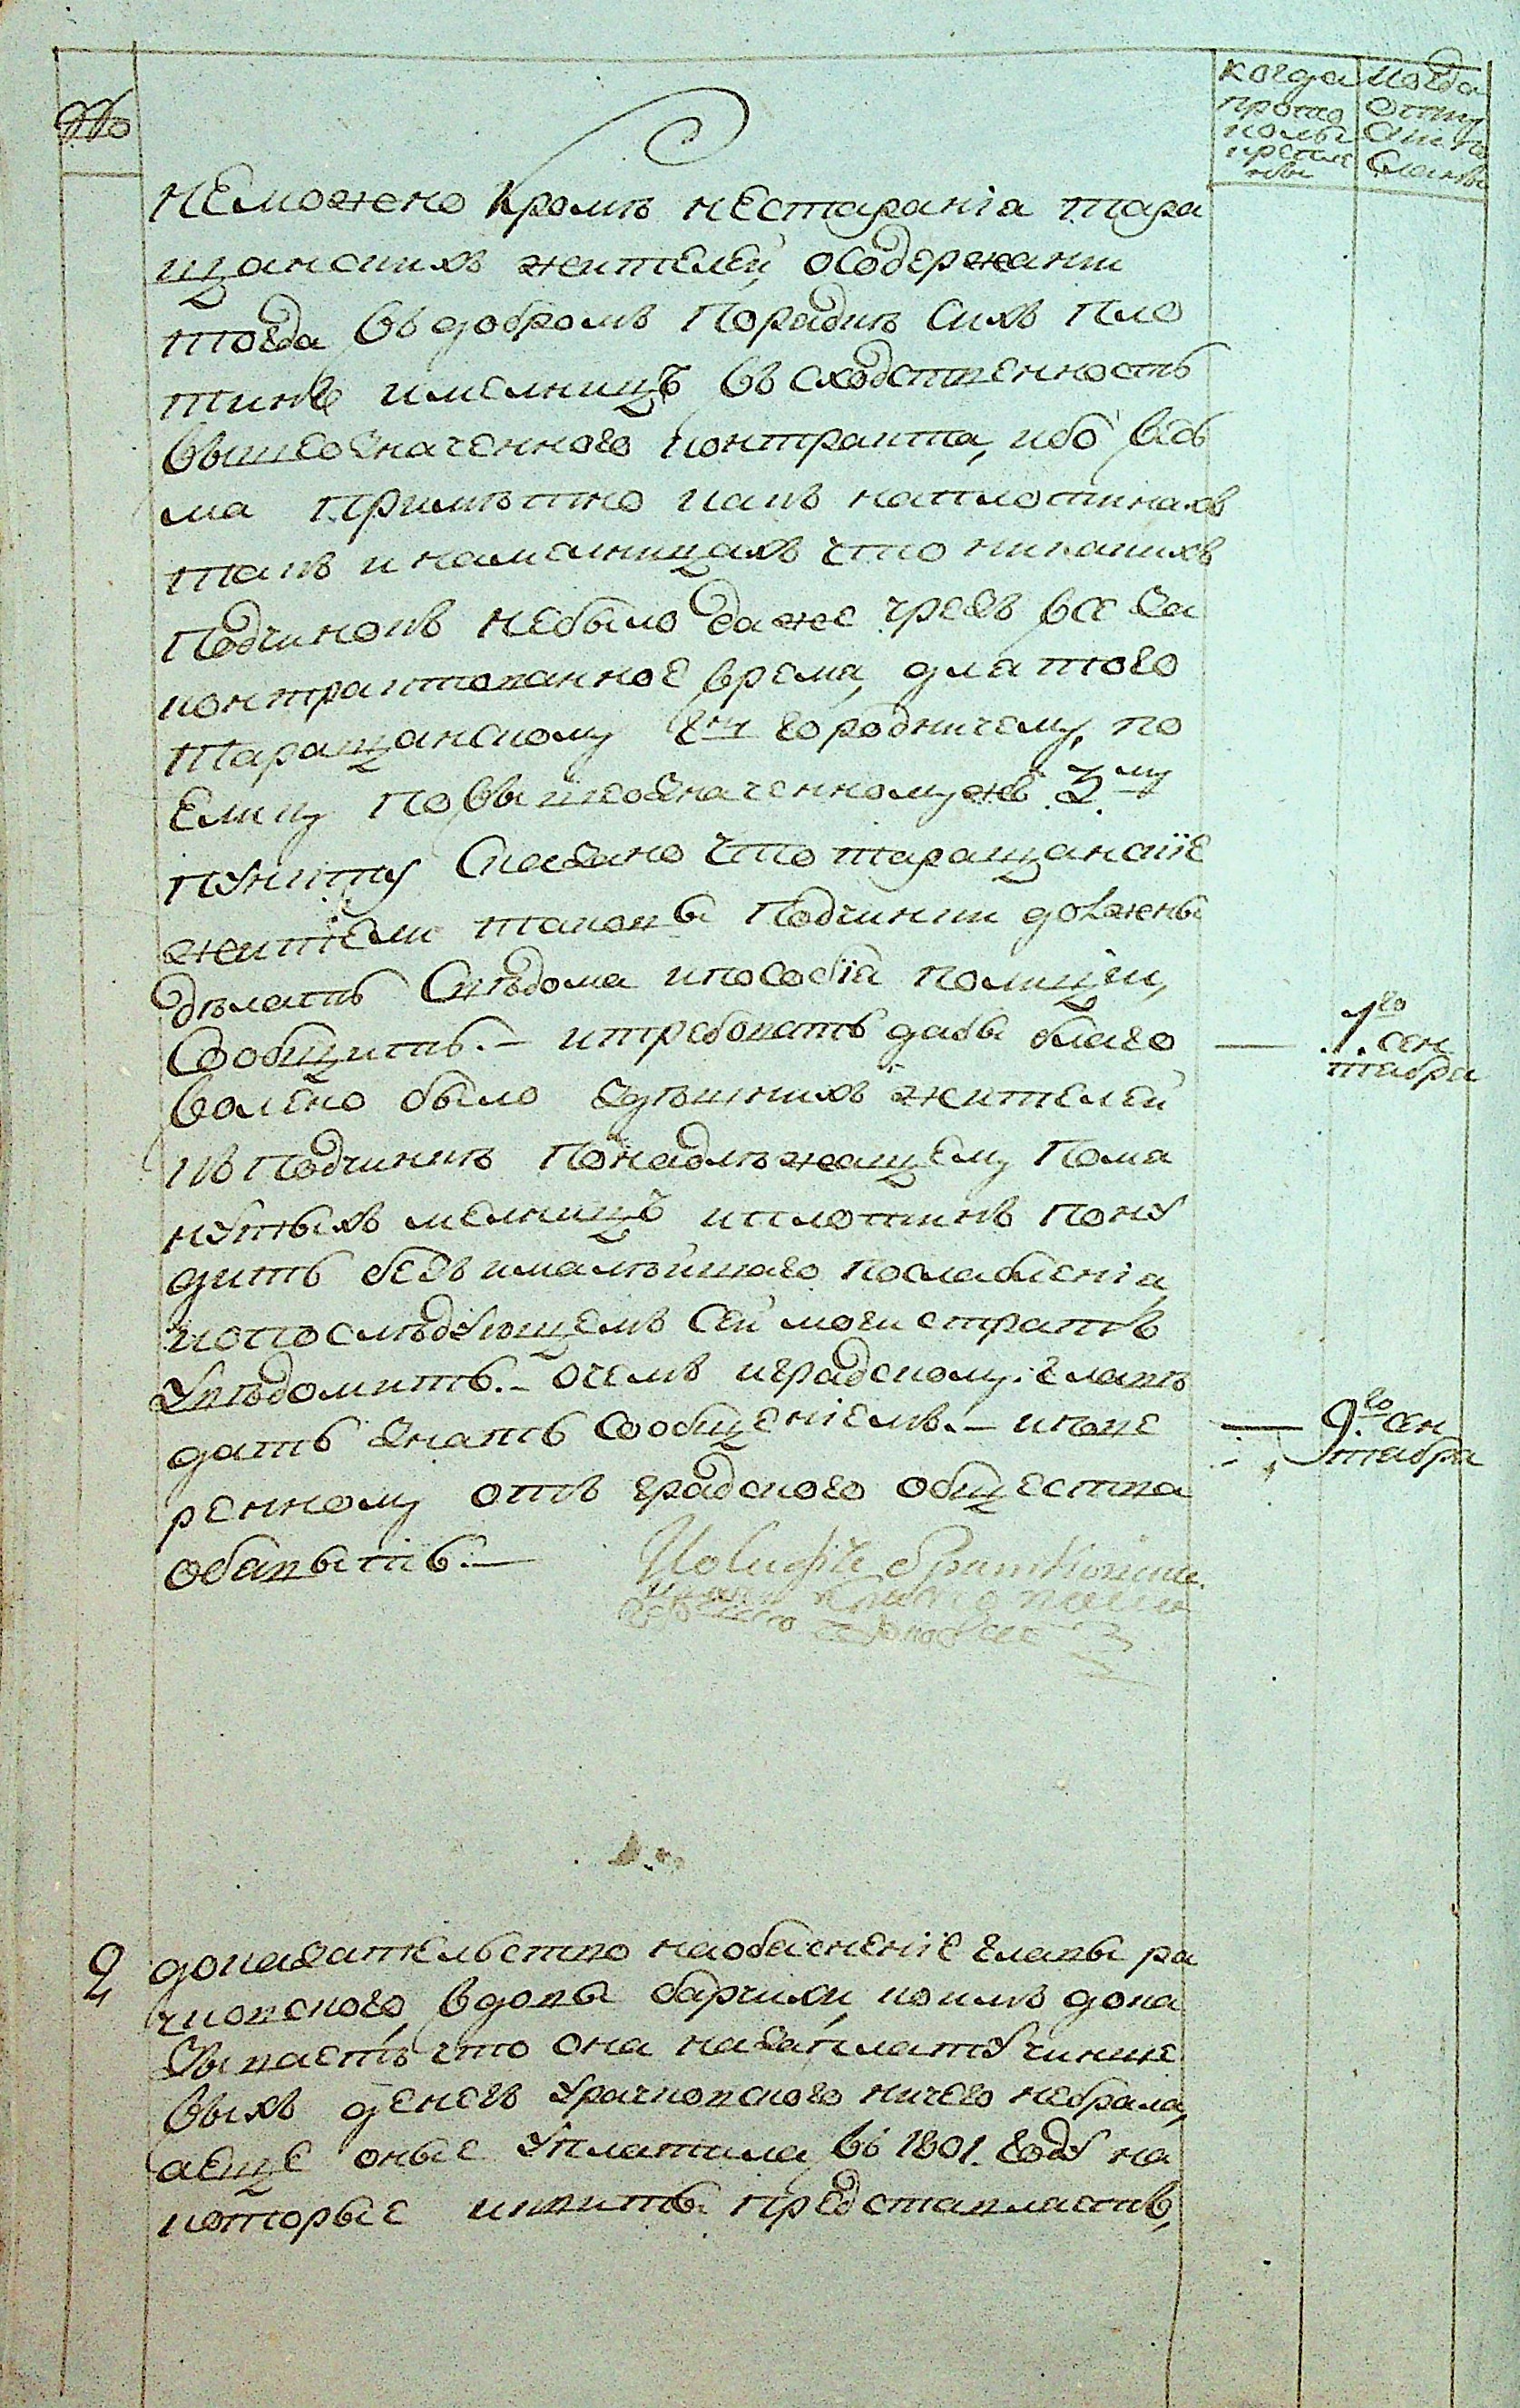 №
когда прото колы крепле ны
когда отпу ски по сланы
неможено кромѣ нестаранія тара
щанскихъ жителей, осодержании
тогда въ добромъ порадкѣ сихъ пло
тинъ имелницъ въ сходственность
вышеозначенного контракта, ибо весь
ма примѣтно какъ наплотинахъ
такъ и намелницахъ что никакихъ
подчинокъ небыло даже чрезъ все за
контрактованное время, для того
таращанскому гну городничему, по
елику повышеозначенномужъ 3.му
пункту сказано что таращанскіе
жители таковы подчинки должны
дѣлать свѣдома ипособіа полиціи,
сообщить. – итребовать дабы благо
волено было здѣшнихъ жителей
къ подчинкѣ понадлѣжащему пома
нутыхъ мелницъ иплотинъ пону
дить безъ имальйшаго послабленіа,
ипослѣдующемъ сей магистратъ
увѣдомить. – очемъ иградскому главѣ
дать знать сообщеніемъ. – иповѣ
ренному отъ градского общества
обавыть. –
1го сен
табра
9го сен
табра
2
доказателство наобясненіе главы ра
чковского, вдовы барчихи, коимъ дока
зываетъ что она назаплату чинше
выхъ денегъ урачковского ничего небрала,
аеще оные уплатила въ 1801. году на
которые квиты представляетъ,